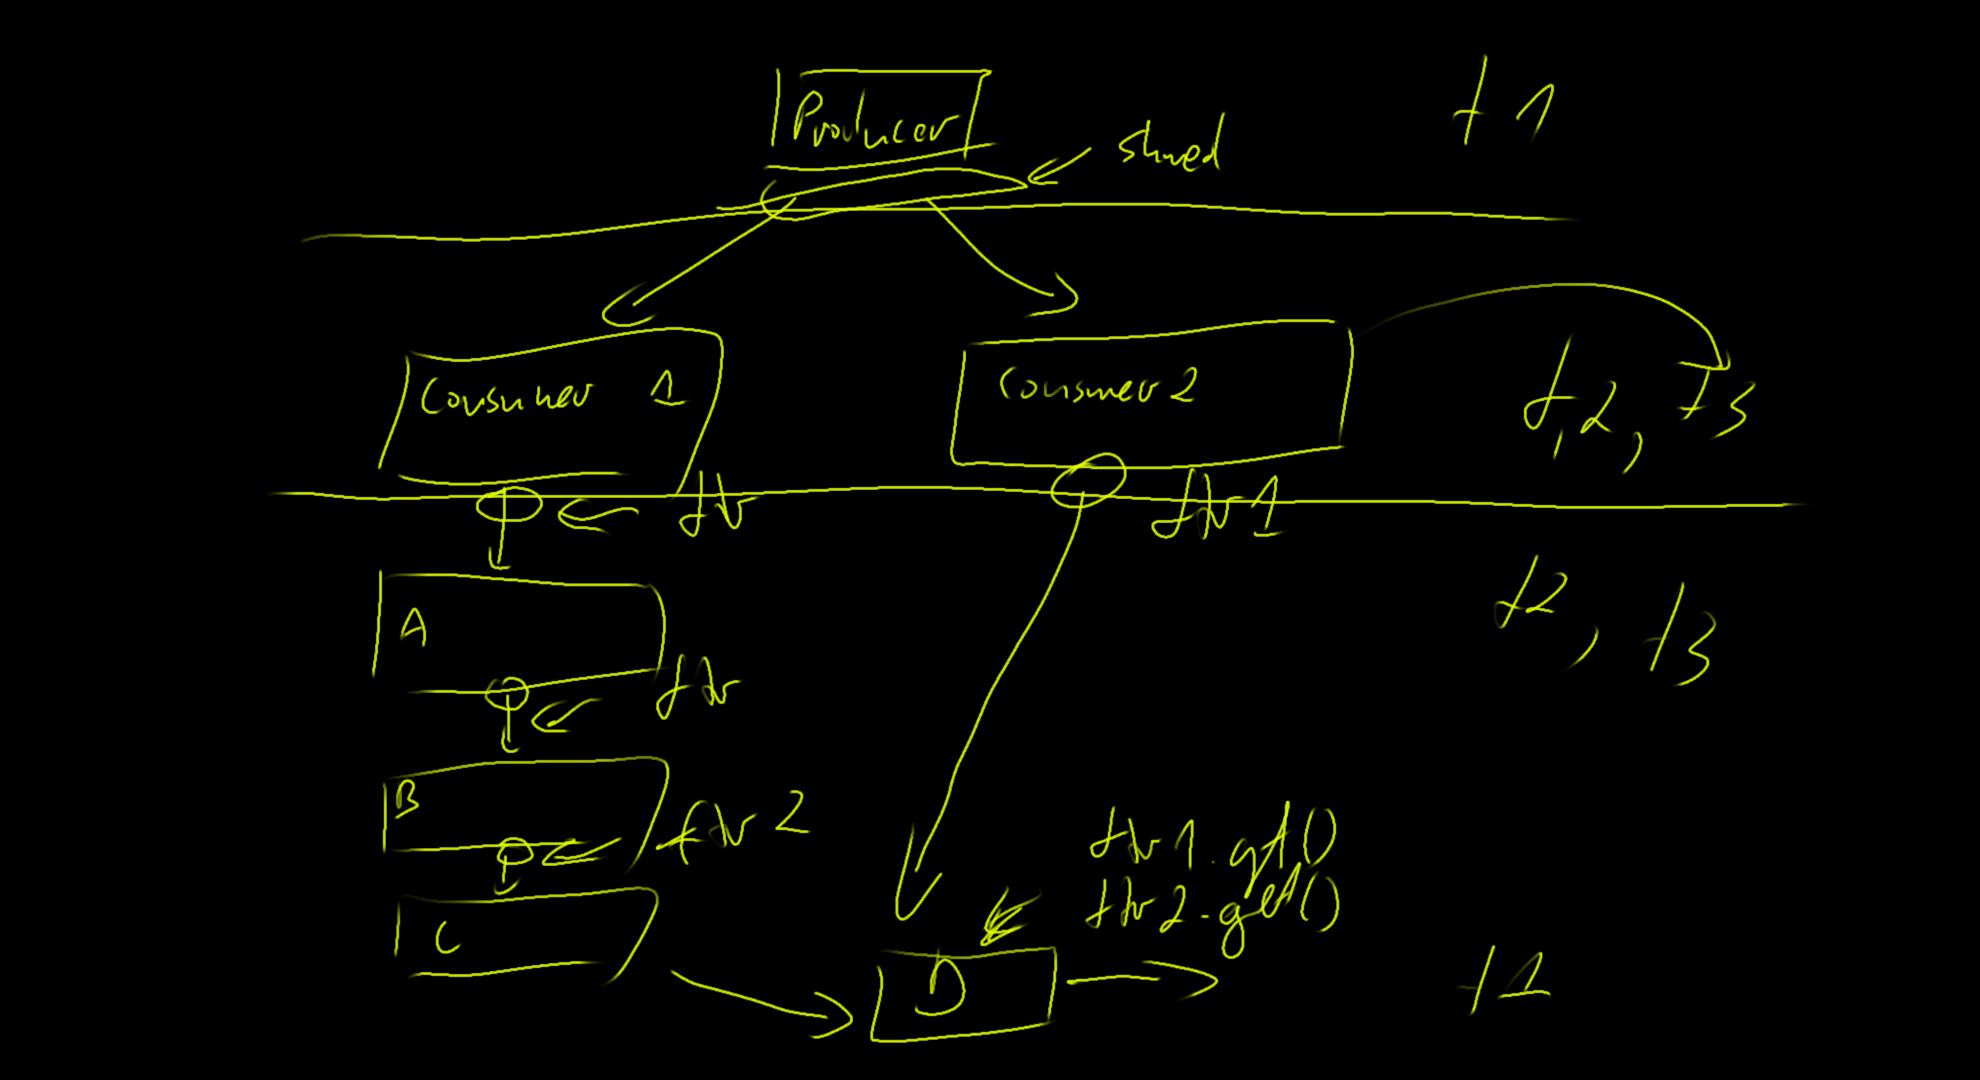 Producer
shared
t1
Consumer 1
Consumer 2
t2, t3
ftr
ftr1
A
t2, t3
ftr
B
ftr2
ftr1.get()
ftr2.get()
C
D
t1